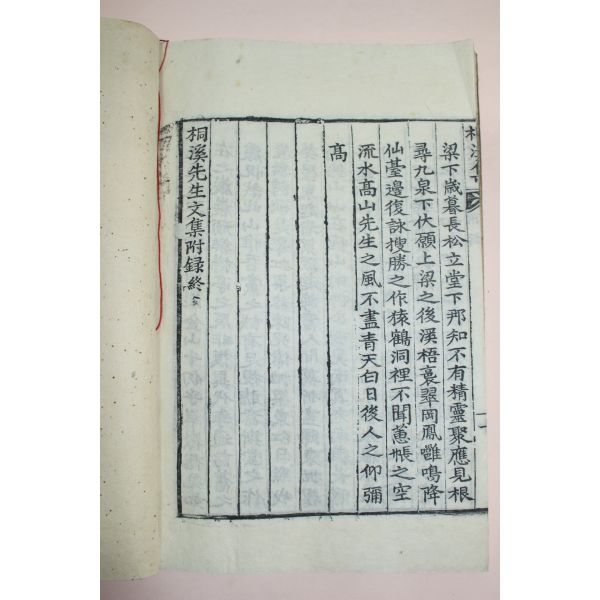 桐溪集
梁下歲暮長松立堂下那知不有精靈聚應見根
尋九泉下伏願上梁之後溪梧裊翠岡鳳雝鳴降
仙䑓邊復詠搜勝之作猿鶴洞裡不聞蕙帳之空
流水髙山先生之風不盡青天白日後人之仰彌
髙
桐溪先生文集附録終